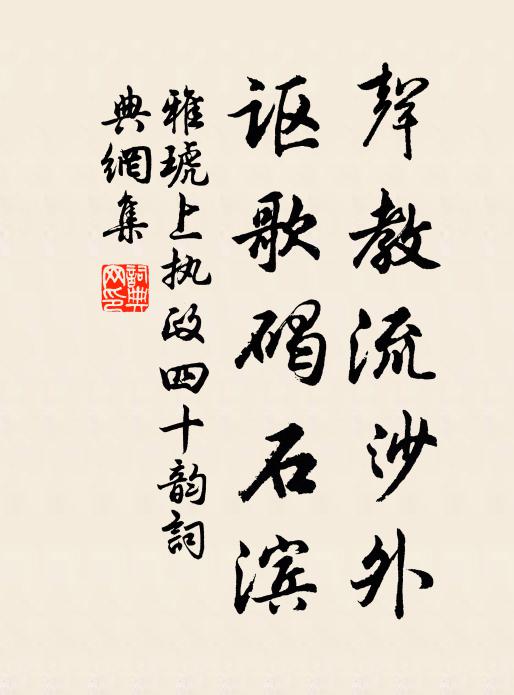 声教流沙外
讴歌碣石滨
雅琥上执政四十韵词
典网集
词典网印